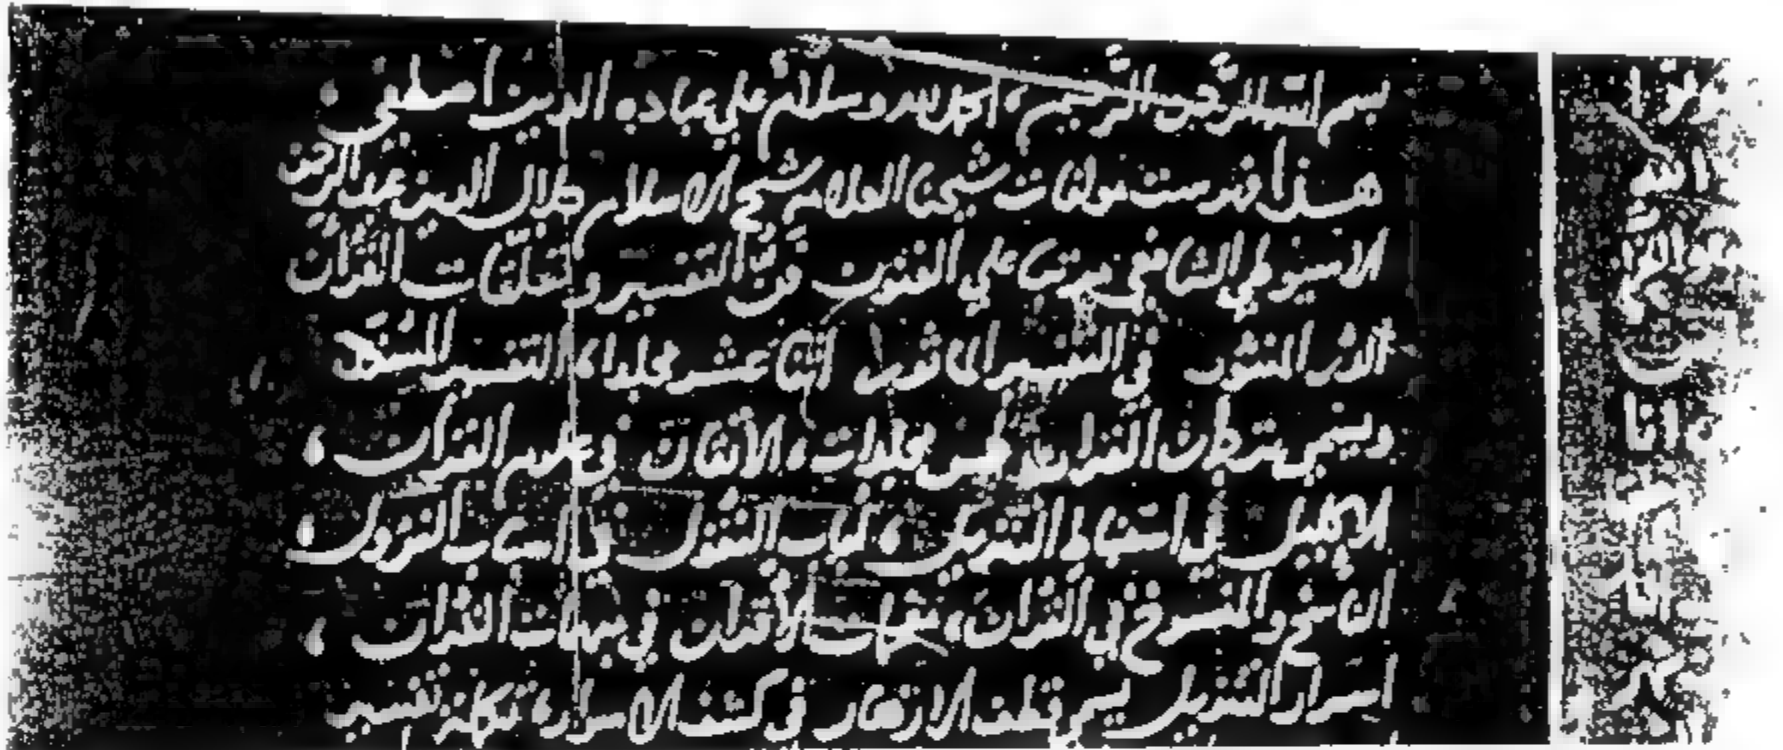 بسم الله الرحمن الرحيم، الحمد لله وسلام على عباده الذين اصطفى
هذا فهرست مولفات شيخنا العلامة شيخ الاسلام جلال الدين عبد الرحمن
الاسيوطي الشافعي مرتبا على الفنون فن التفسير وتعلقات القرآن
الدر المنثور في التفسير الماثور اثنا عشر مجلدا، التفسير المسند
ويسمى ترجمان القرآن خمس مجلدات، الاتقان في علوم القرآن،
الاكليل في استنباط التنزيل، لباب النقول في اسباب النزول،
الناسخ والمنسوخ في القرآن، مفحمات الأقران في مبهمات القرآن،
اسرار التنزيل يسمى قطف الازهار في كشف الاسرار، تكملة تفسير